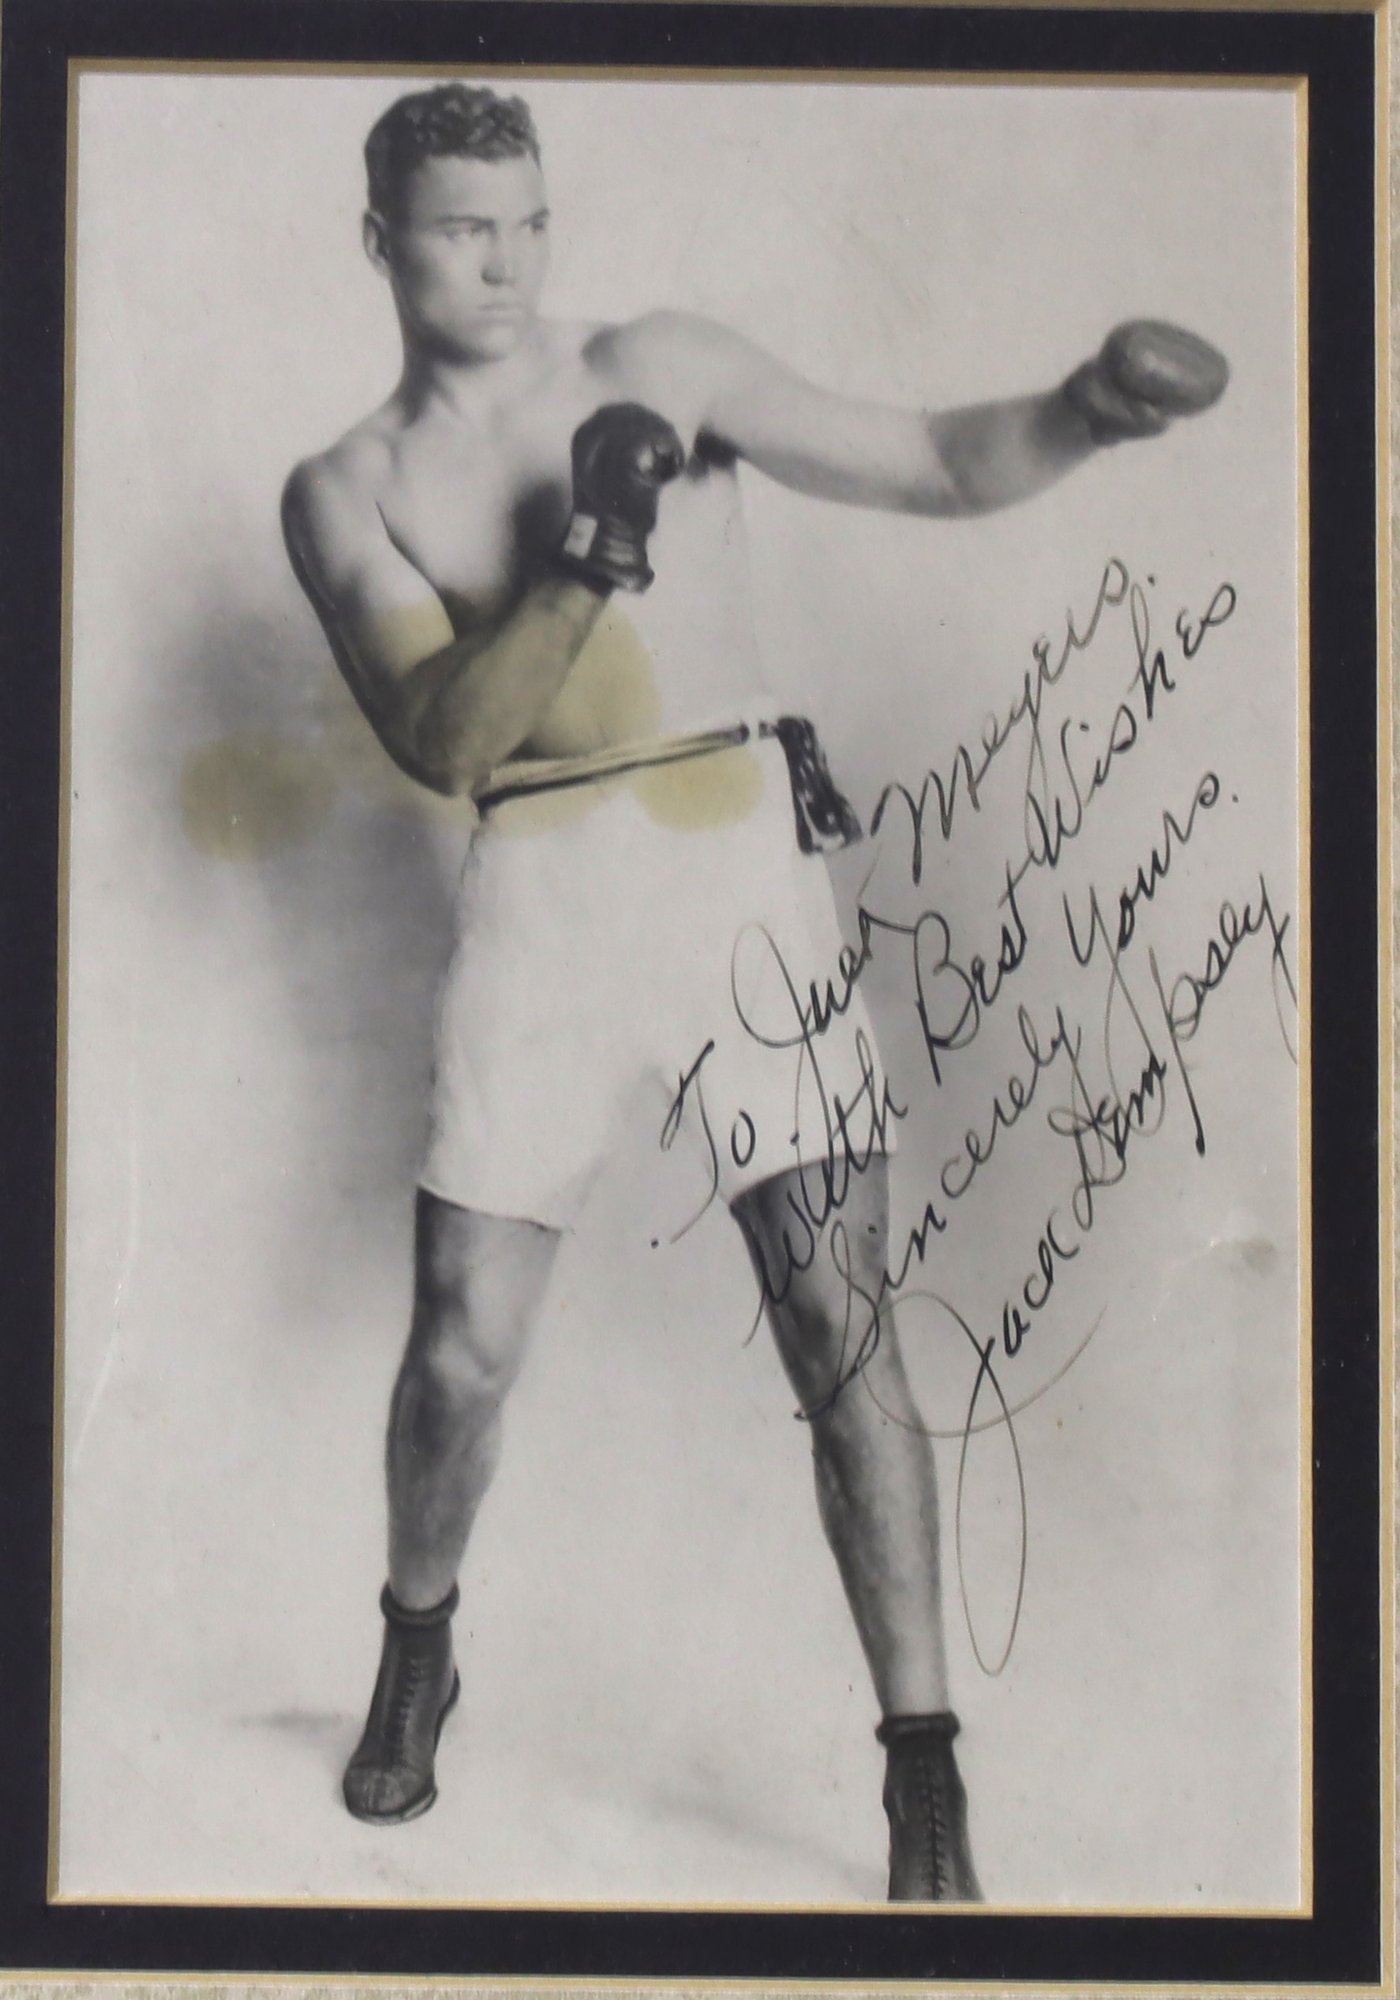 To Juen Meyers.
With Best Wishes
Sincerely Yours.
Jack Dempsey